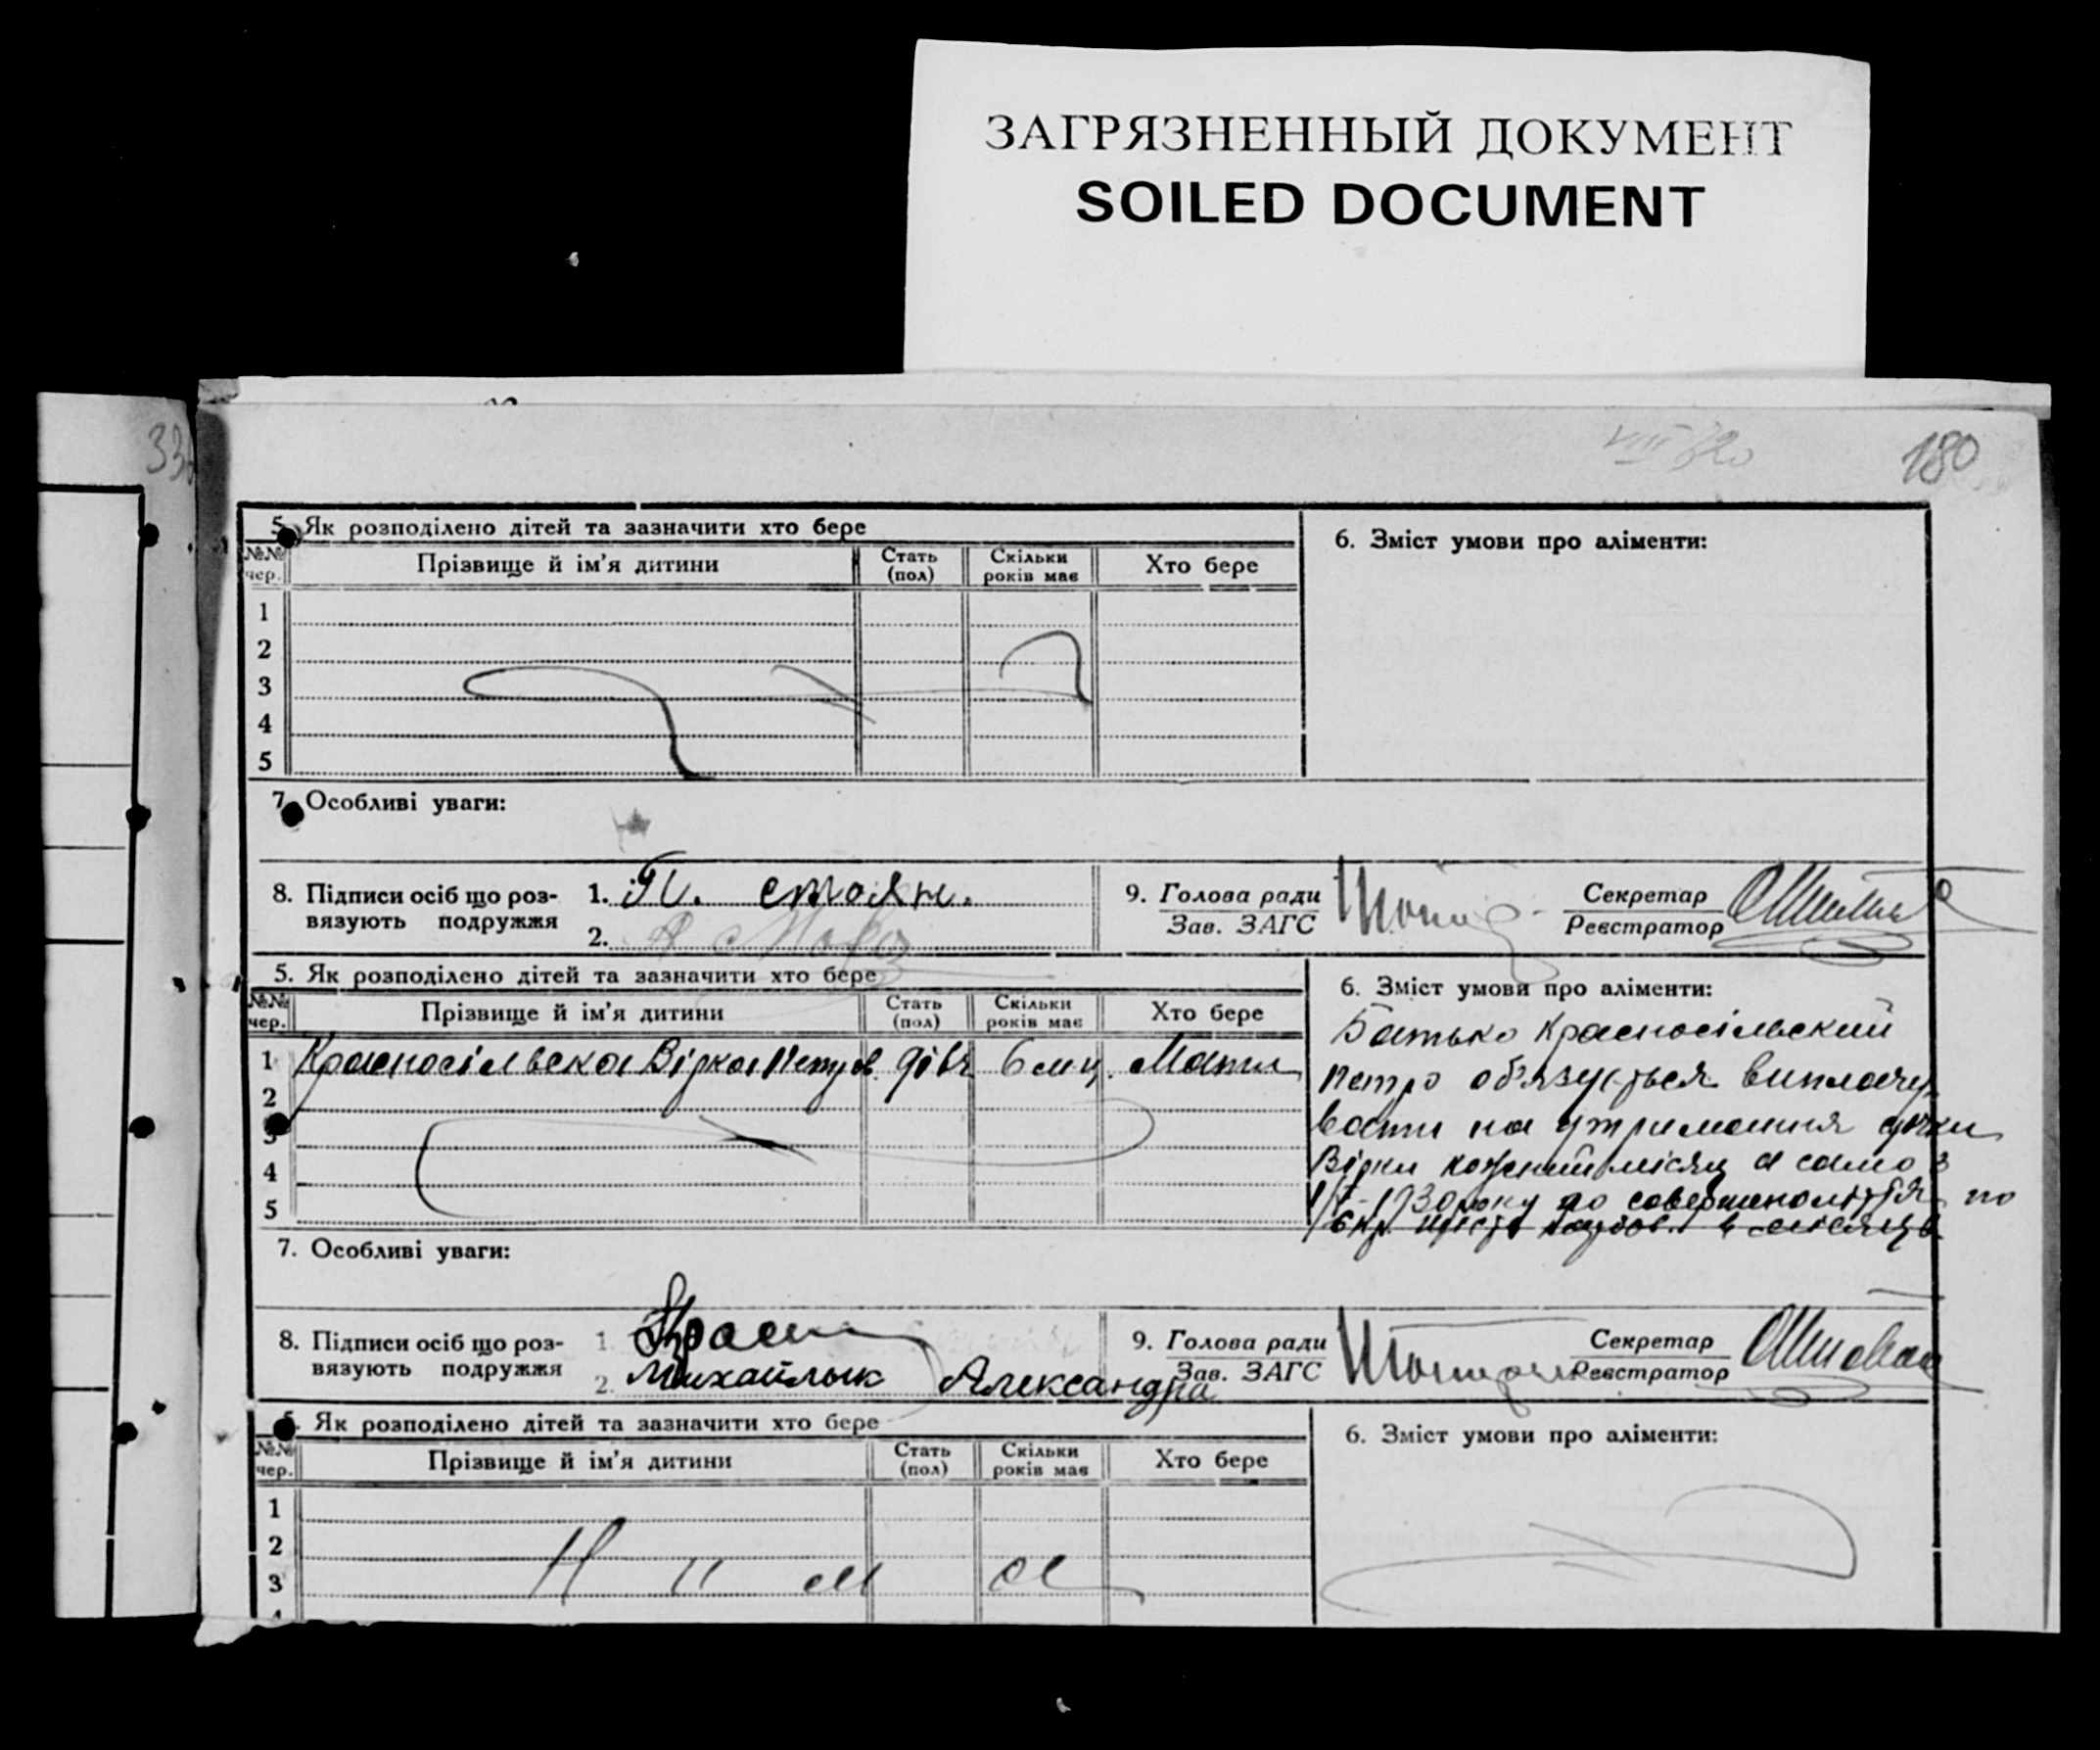 ЗАГРЯЗНЕННЫЙ ДОКУМЕНТ
SOILED DOCUMENT
33
180
5. Як розподілено дітей та зазначити хто бере
№№ чер. Прізвище й ім'я дитини Стать (пол) Скільки років має Хто бере
1
2
3
4
5
6. Зміст умови про аліменти:
7. Особливі уваги:
8. Підписи осіб що роз-
вязують подружжя
1. стоян.
2.
9. Голова ради
Зав. ЗАГС
Секретар
Реєстратор
5. Як розподілено дітей та зазначити хто бере
№№ чер. Прізвище й ім'я дитини Стать (пол) Скільки років має Хто бере
1 Красносільська Вірка Петров. дівч. 6 м-ц. Мати
2
3
4
5
6. Зміст умови про аліменти:
Батько Красносільский
Петро об'язується виплачу
вати на утримання дочки
Вірки кожний місяц а само з
1930 року до совершеноліття по
6 кр. шість карбов. в місяць
7. Особливі уваги:
8. Підписи осіб що роз-
вязують подружжя
1. Красн
2. Михайлык Александра
9. Голова ради
Зав. ЗАГС
Секретар
Реєстратор
5. Як розподілено дітей та зазначити хто бере
№№ чер. Прізвище й ім'я дитини Стать (пол) Скільки років має Хто бере
1
2
3
4
6. Зміст умови про аліменти: